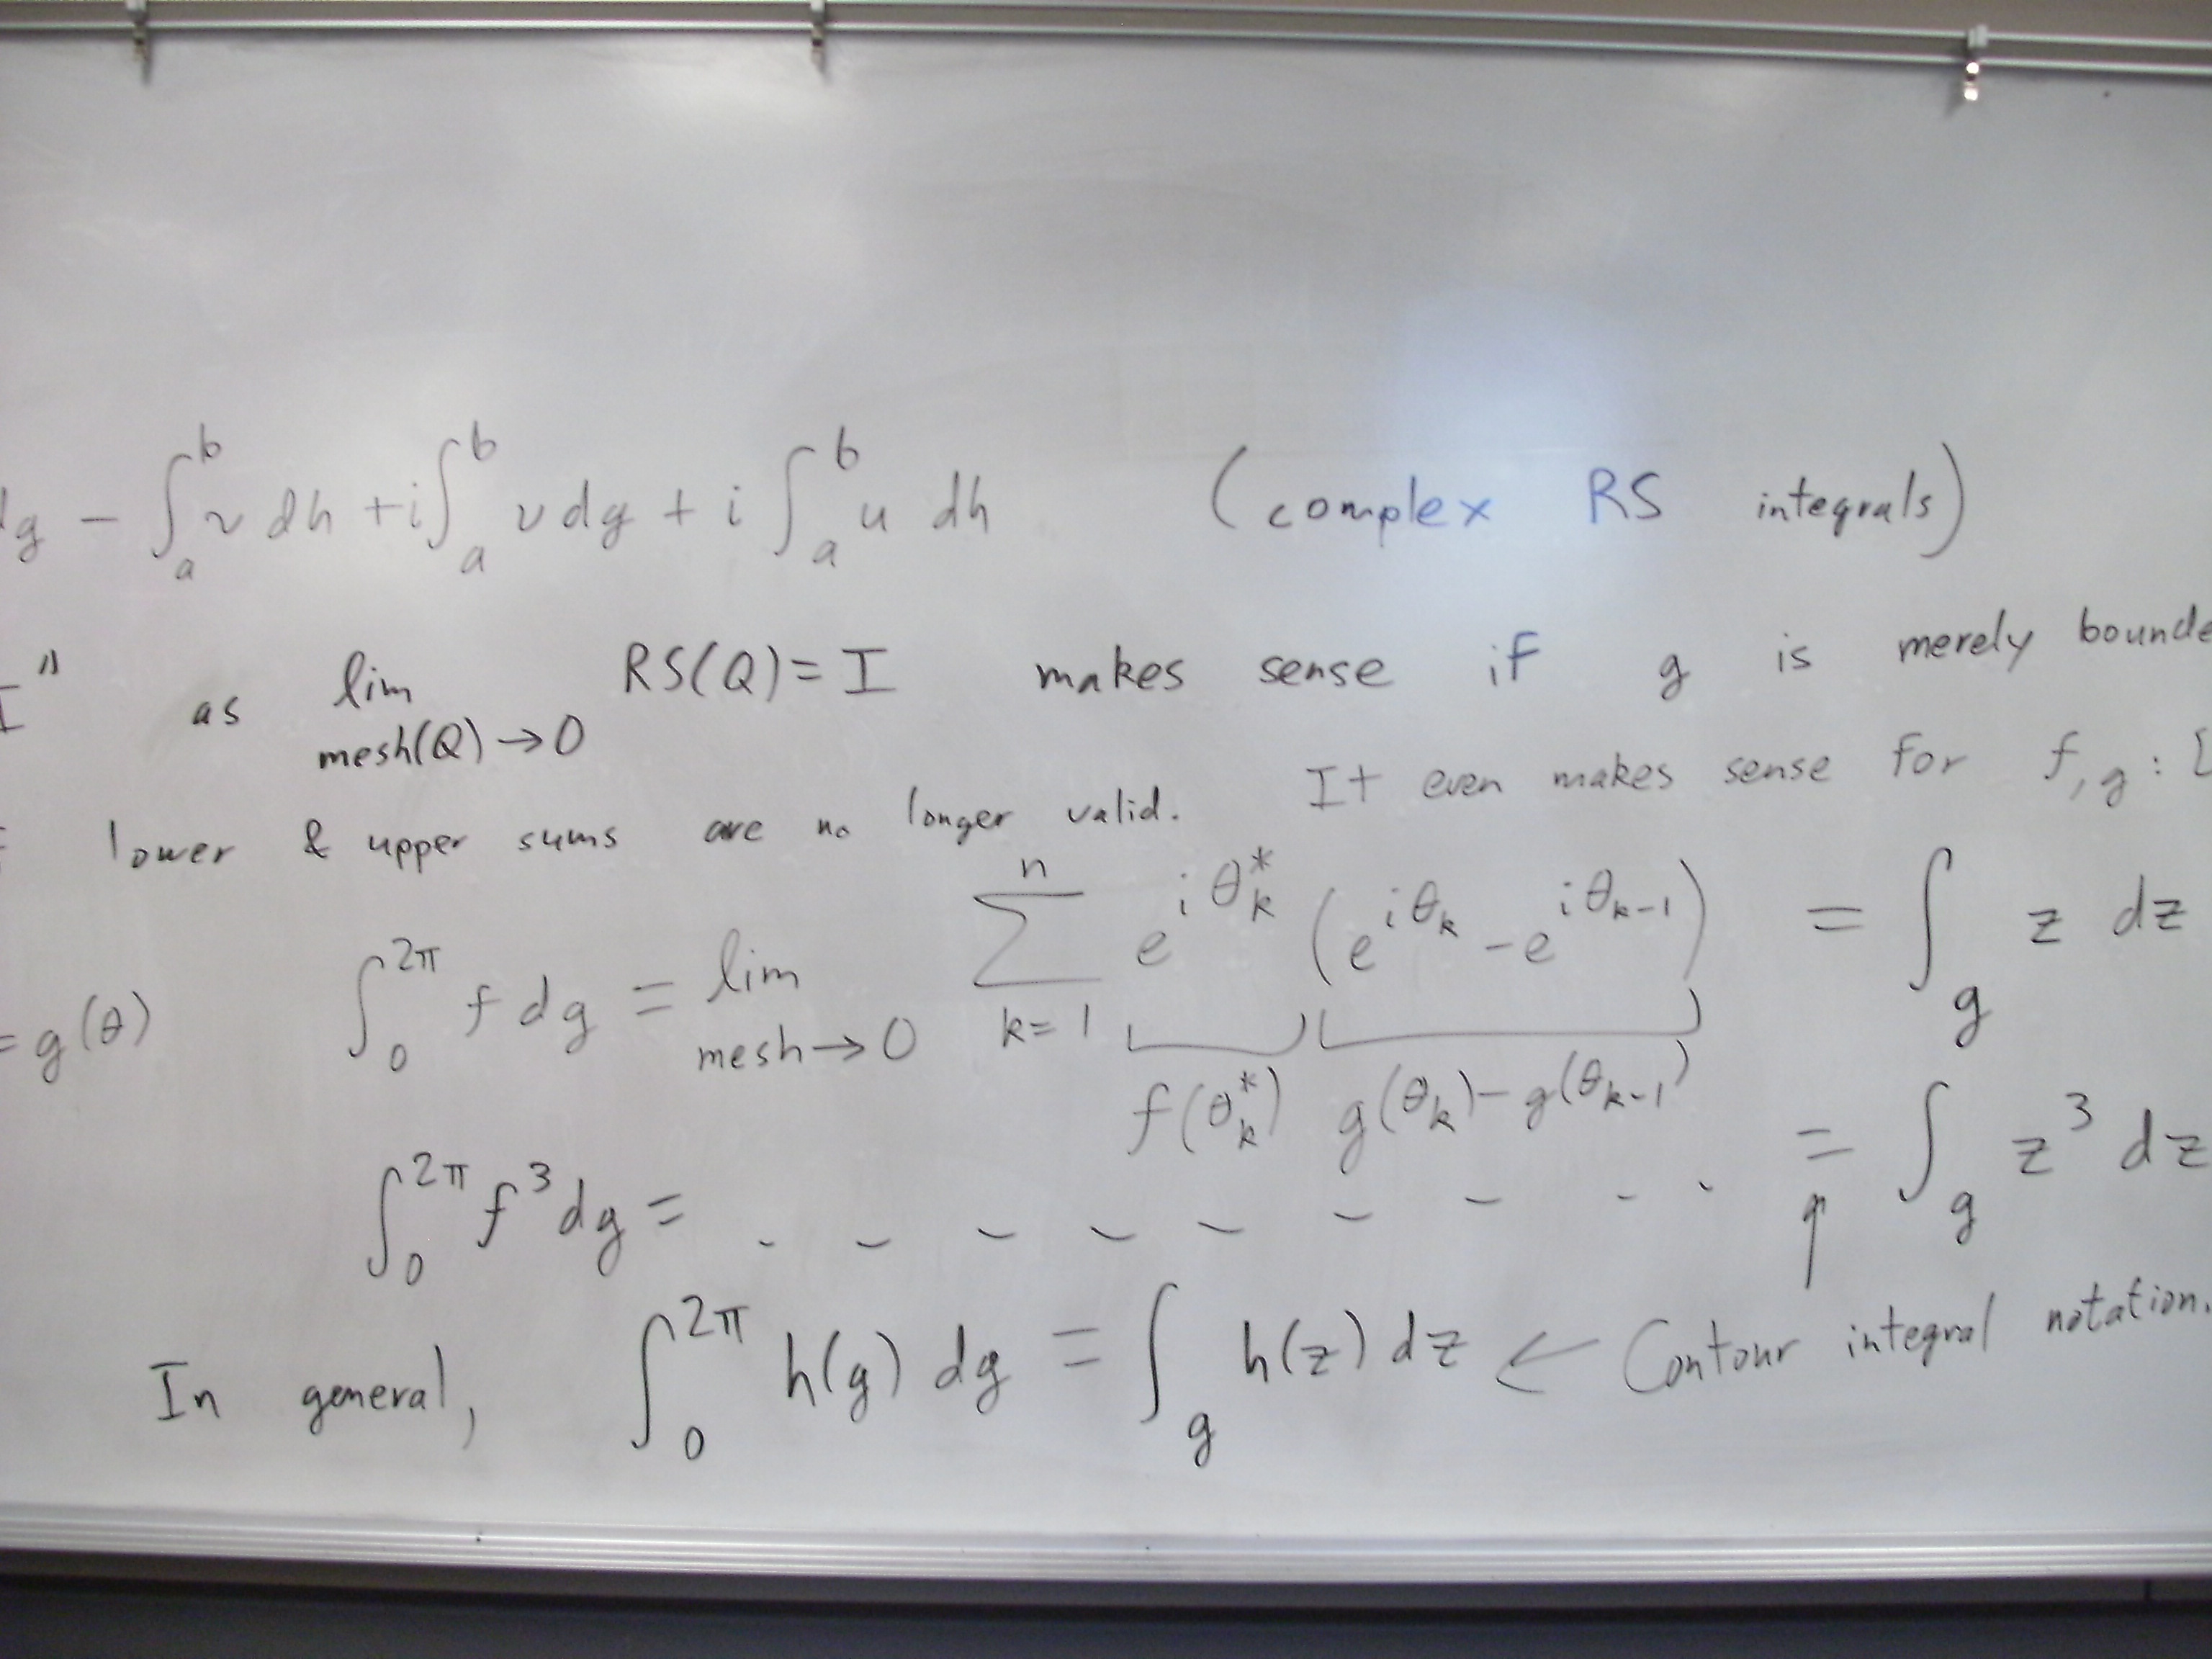 dg − ∫_a^b v dh + i ∫_a^b v dg + i ∫_a^b u dh (complex RS integrals)
I" as lim_{mesh(Q)→0} RS(Q) = I makes sense if g is merely bounde
lower & upper sums are no longer valid. It even makes sense for f, g : [
= g(θ) ∫_0^{2π} f dg = lim_{mesh→0} ∑_{k=1}^n e^{iθ_k^*} (e^{iθ_k} − e^{iθ_{k-1}}) = ∫_g z dz
f(θ_k^*) g(θ_k) − g(θ_{k-1})
∫_0^{2π} f^3 dg = - - - - - - - - = ∫_g z^3 dz
In general, ∫_0^{2π} h(g) dg = ∫_g h(z) dz ← Contour integral notation.